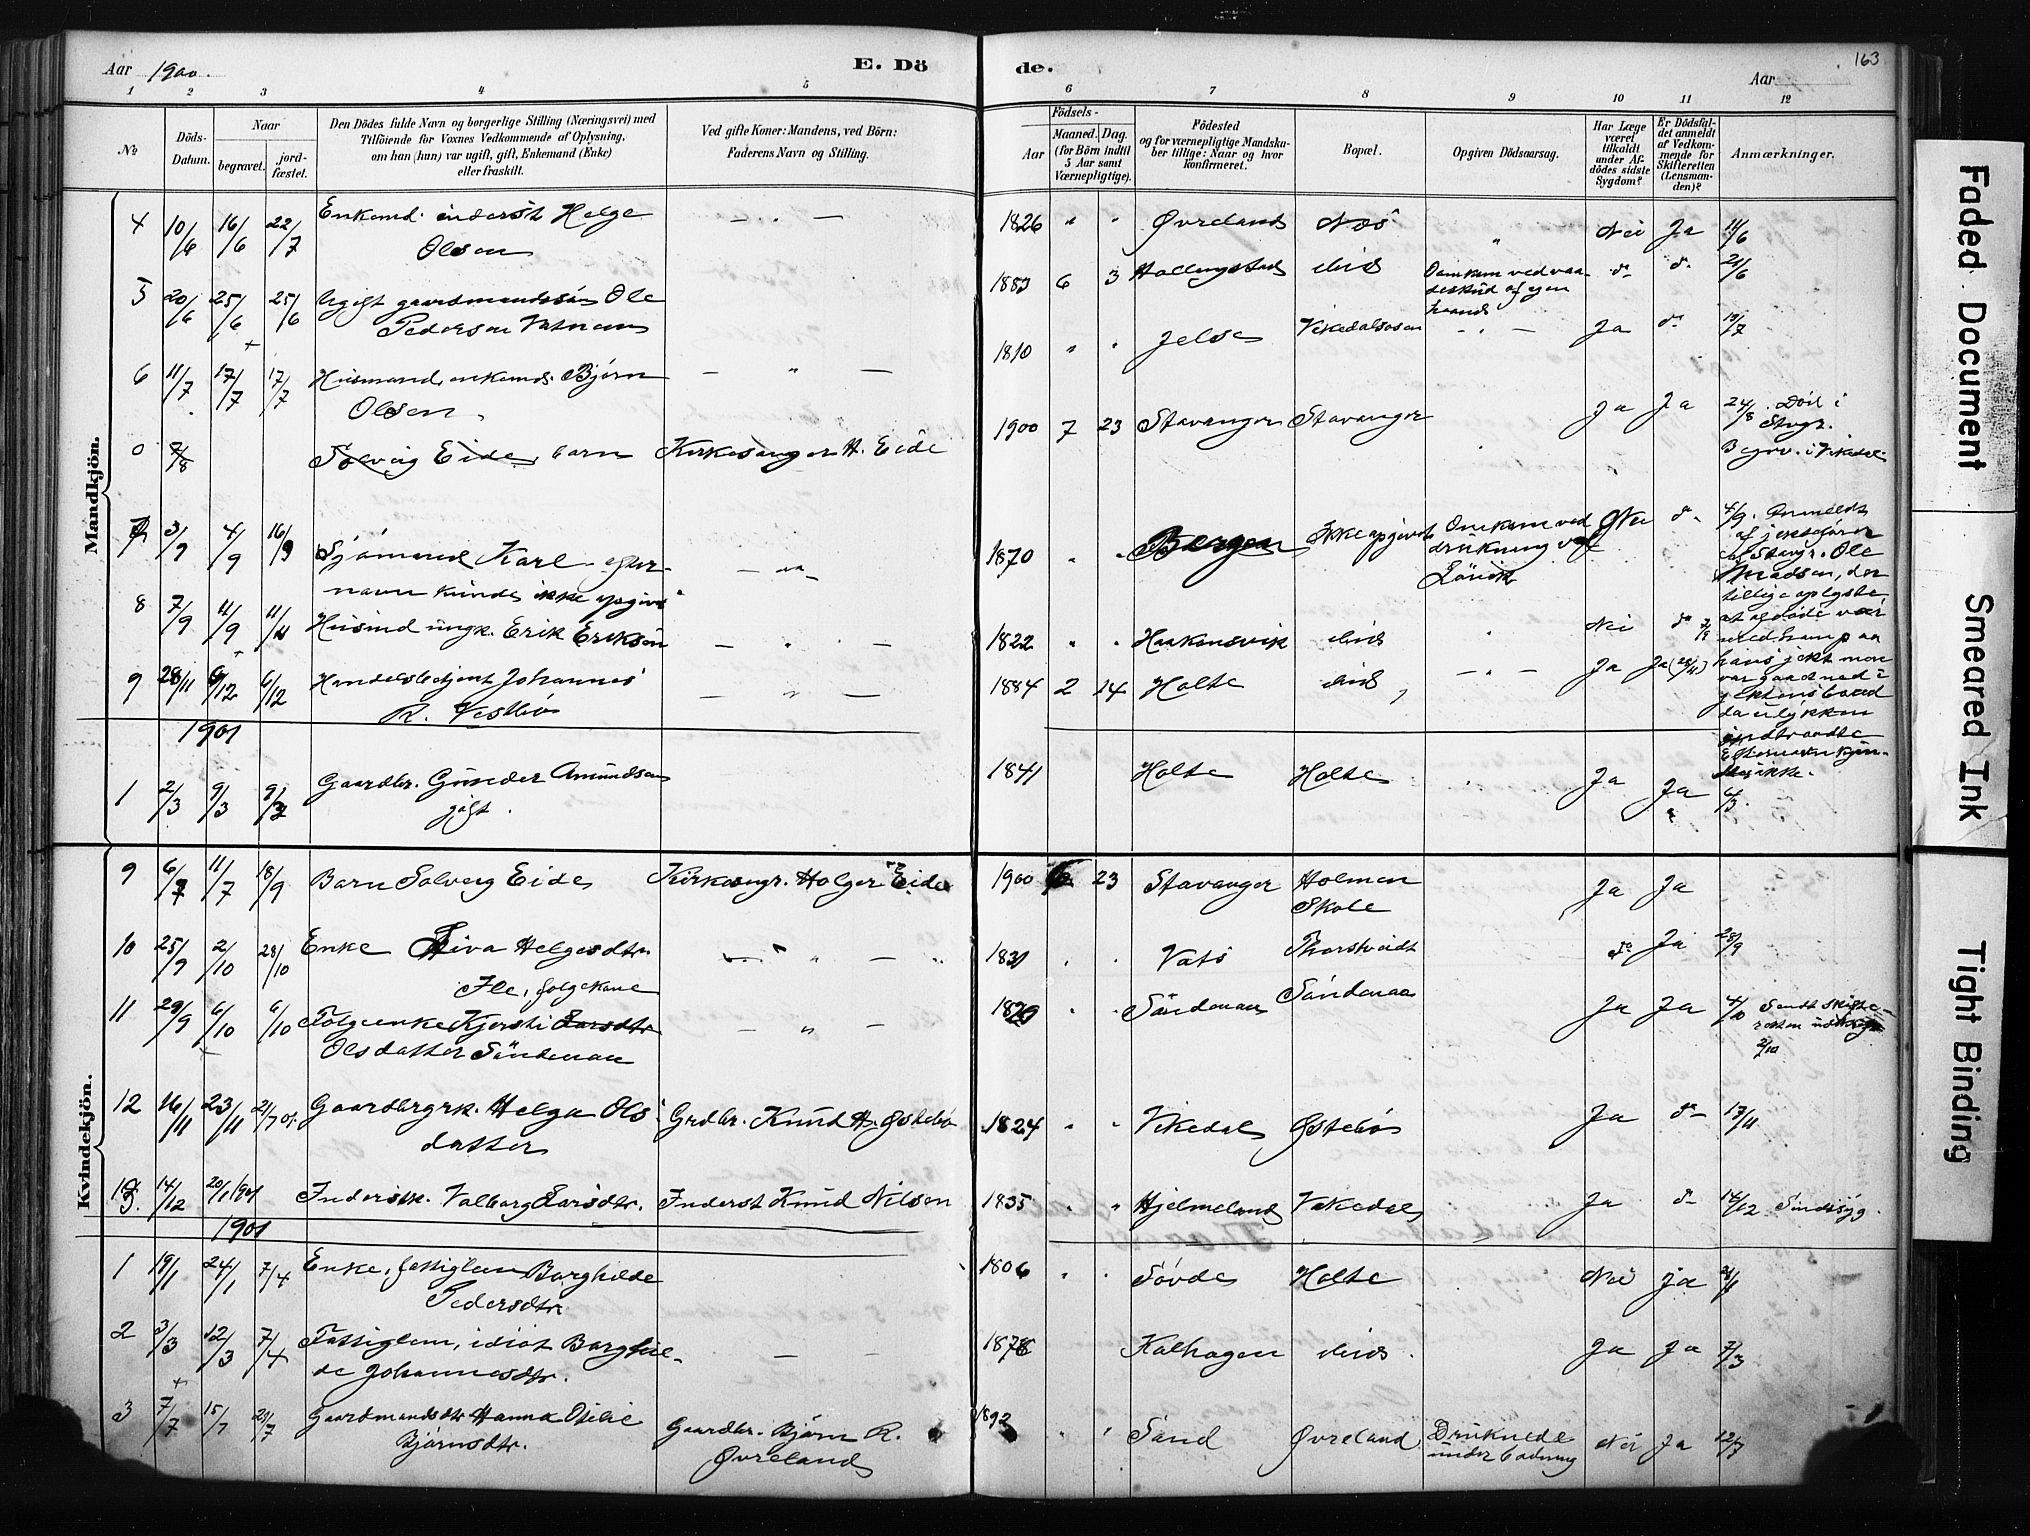 Aar 1900.
E. Dö
de.
Aar
163
1 2 3 4 5 6 7 8 9 10 11 12
No
Döds-Datum.
Naar
begravet.
jord-fæstet.
Den Dödes fulde Navn og borgerlige Stilling (Næringsvei) med
Tilföiende for Voxnes Vedkommende af Oplysning,
om han (hun) var ugift, gift, Enkemand (Enke)
eller fraskilt.
Ved gifte Koner: Mandens, ved Börn:
Faderens Navn og Stilling.
Födsels-
Aar
Maaned.
Dag.
(for Börn indtil
5 Aar samt
Værnepligtige).
Födested
og for værnepligtige Mandska-
ber tillige: Naar og hvor
konfirmeret.
Bopæl.
Opgiven Dödsaarsag.
Har Læge
været
tilkaldt
under Af-
dödes sidste
Sygdom?
Er Dödsfal-
det anmeldt
af Vedkom-
mende for
Skifteretten
(Lensman-
den)?
Anmærkninger.
Mandkjön.
4 10/6 16/6 22/7 Enkemd. inderst Helge
Olsen
1826 " " Øvreland Næs " Nei Ja 11/6
5 20/6 25/6 25/6 Ugift gaardmandssøn Ole
Pedersen Vatnem
1883 6 3 Hallingstad ibid Omkom ved vaa-
deskud af egen
haand
d- d- 21/6
6 11/7 17/7 17/7 Husmand, enkemd. Bjørn
Olsen
1810 " " Jelse Vikedalsosen Ja d- 13/7
0 7/8 Solveig Eide, barn Kirkesanger H. Eide
1900 7 23 Stavanger Stavanger Ja Ja 24/8. Död i
Stvgr.
Begrv. i Vikedal
7 3/9 4/9 16/9 Sjömand Karl - efter-
navn kunde ikke opgives
1870 " " Bergen Ikke opgivet Omkom ved
drukning ved
Nei d- 4/9. Anmeldt
af jægteförer
af Stavgr. Ole
Madsen, der
tillige oplyste
at afdöde var
med ham paa
hans jekt men
var gaaet ned i
jektens baad
da ulykken
indtraadte
Efternavn kjen-
des ikke.
8 7/9 11/9 Husmd ungk. Erik Eriksön
1822 " " Haakonsvik ibid " Nei d-
9 28/11 6/12 6/12 Handelsbetjent Johannes
R. Vestbö
1884 2 14 Holte ibid Ja Ja
1901
1 2/3 9/3 9/3 Gaardbr. Gunder Amundsen
gift.
1841 Holte Holte " Ja Ja 4/3.
Kvindekjön.
9 6/7 11/7 18/9 Barn Solveig Eide Kirkesngr. Holger Eide
1900 6 23 Stavanger Holmen
Skole
Ja Ja
10 25/9 2/10 28/10 Enke Siva Helgesdtr.
Ile, folgekone
1831 " " Vats Thorstveidt d- Ja 28/9
11 29/9 6/10 6/10 Folgeenke Kjersti Larsdtr
Olsdatter Söndenaa
1820 " " Söndenaa Söndenaa Ja Ja 4/10 Sendt skifte-
retten
2/10
12 16/11 23/11 21/7 01. Gaardbrgrk. Helga Ols
datter
Grdbr. Knud H. Østebø
1824 " " Vikedal Østebø Ja d- 17/11
13. 14/12 20/1 1901 Inderstk. Valborg Larsdtr. Inderst Knud Nilsen
1835 " " Hjelmeland Vikedal Ja d- 14/12 Sindssyg.
1901
1 19/1 24/1 7/4 Enke, fattiglem Borghilde
Pedersdtr.
1806 " " Sövde Holte Nei ja 21/1
2 3/3 12/3 7/4 Fattiglem, idiot Borghil-
de Johannesdtr.
1878 Kalhagen ibid. Ja Ja 7/3
3 7/7 15/7 21/7 Gaardmandsdtr Hanna Otilie
Bjørnsdtr.
Gaardbr. Bjørn R.
Øvreland
1892 " " Sand Øvreland Druknede
under badning
Nei Ja 12/7
Faded Document
Smeared Ink
Tight Binding